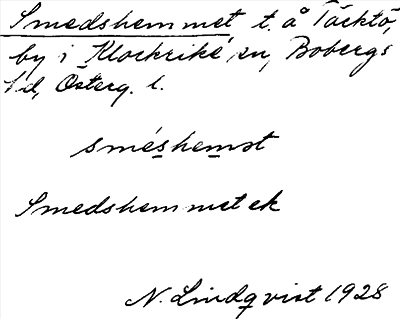 Smedshemmet t. å Täcktö,
by i Klockrike sn, Bobergs
hd, Österg. l.
sméshemət
Smedshemmet ek
N. Lindqvist 1928